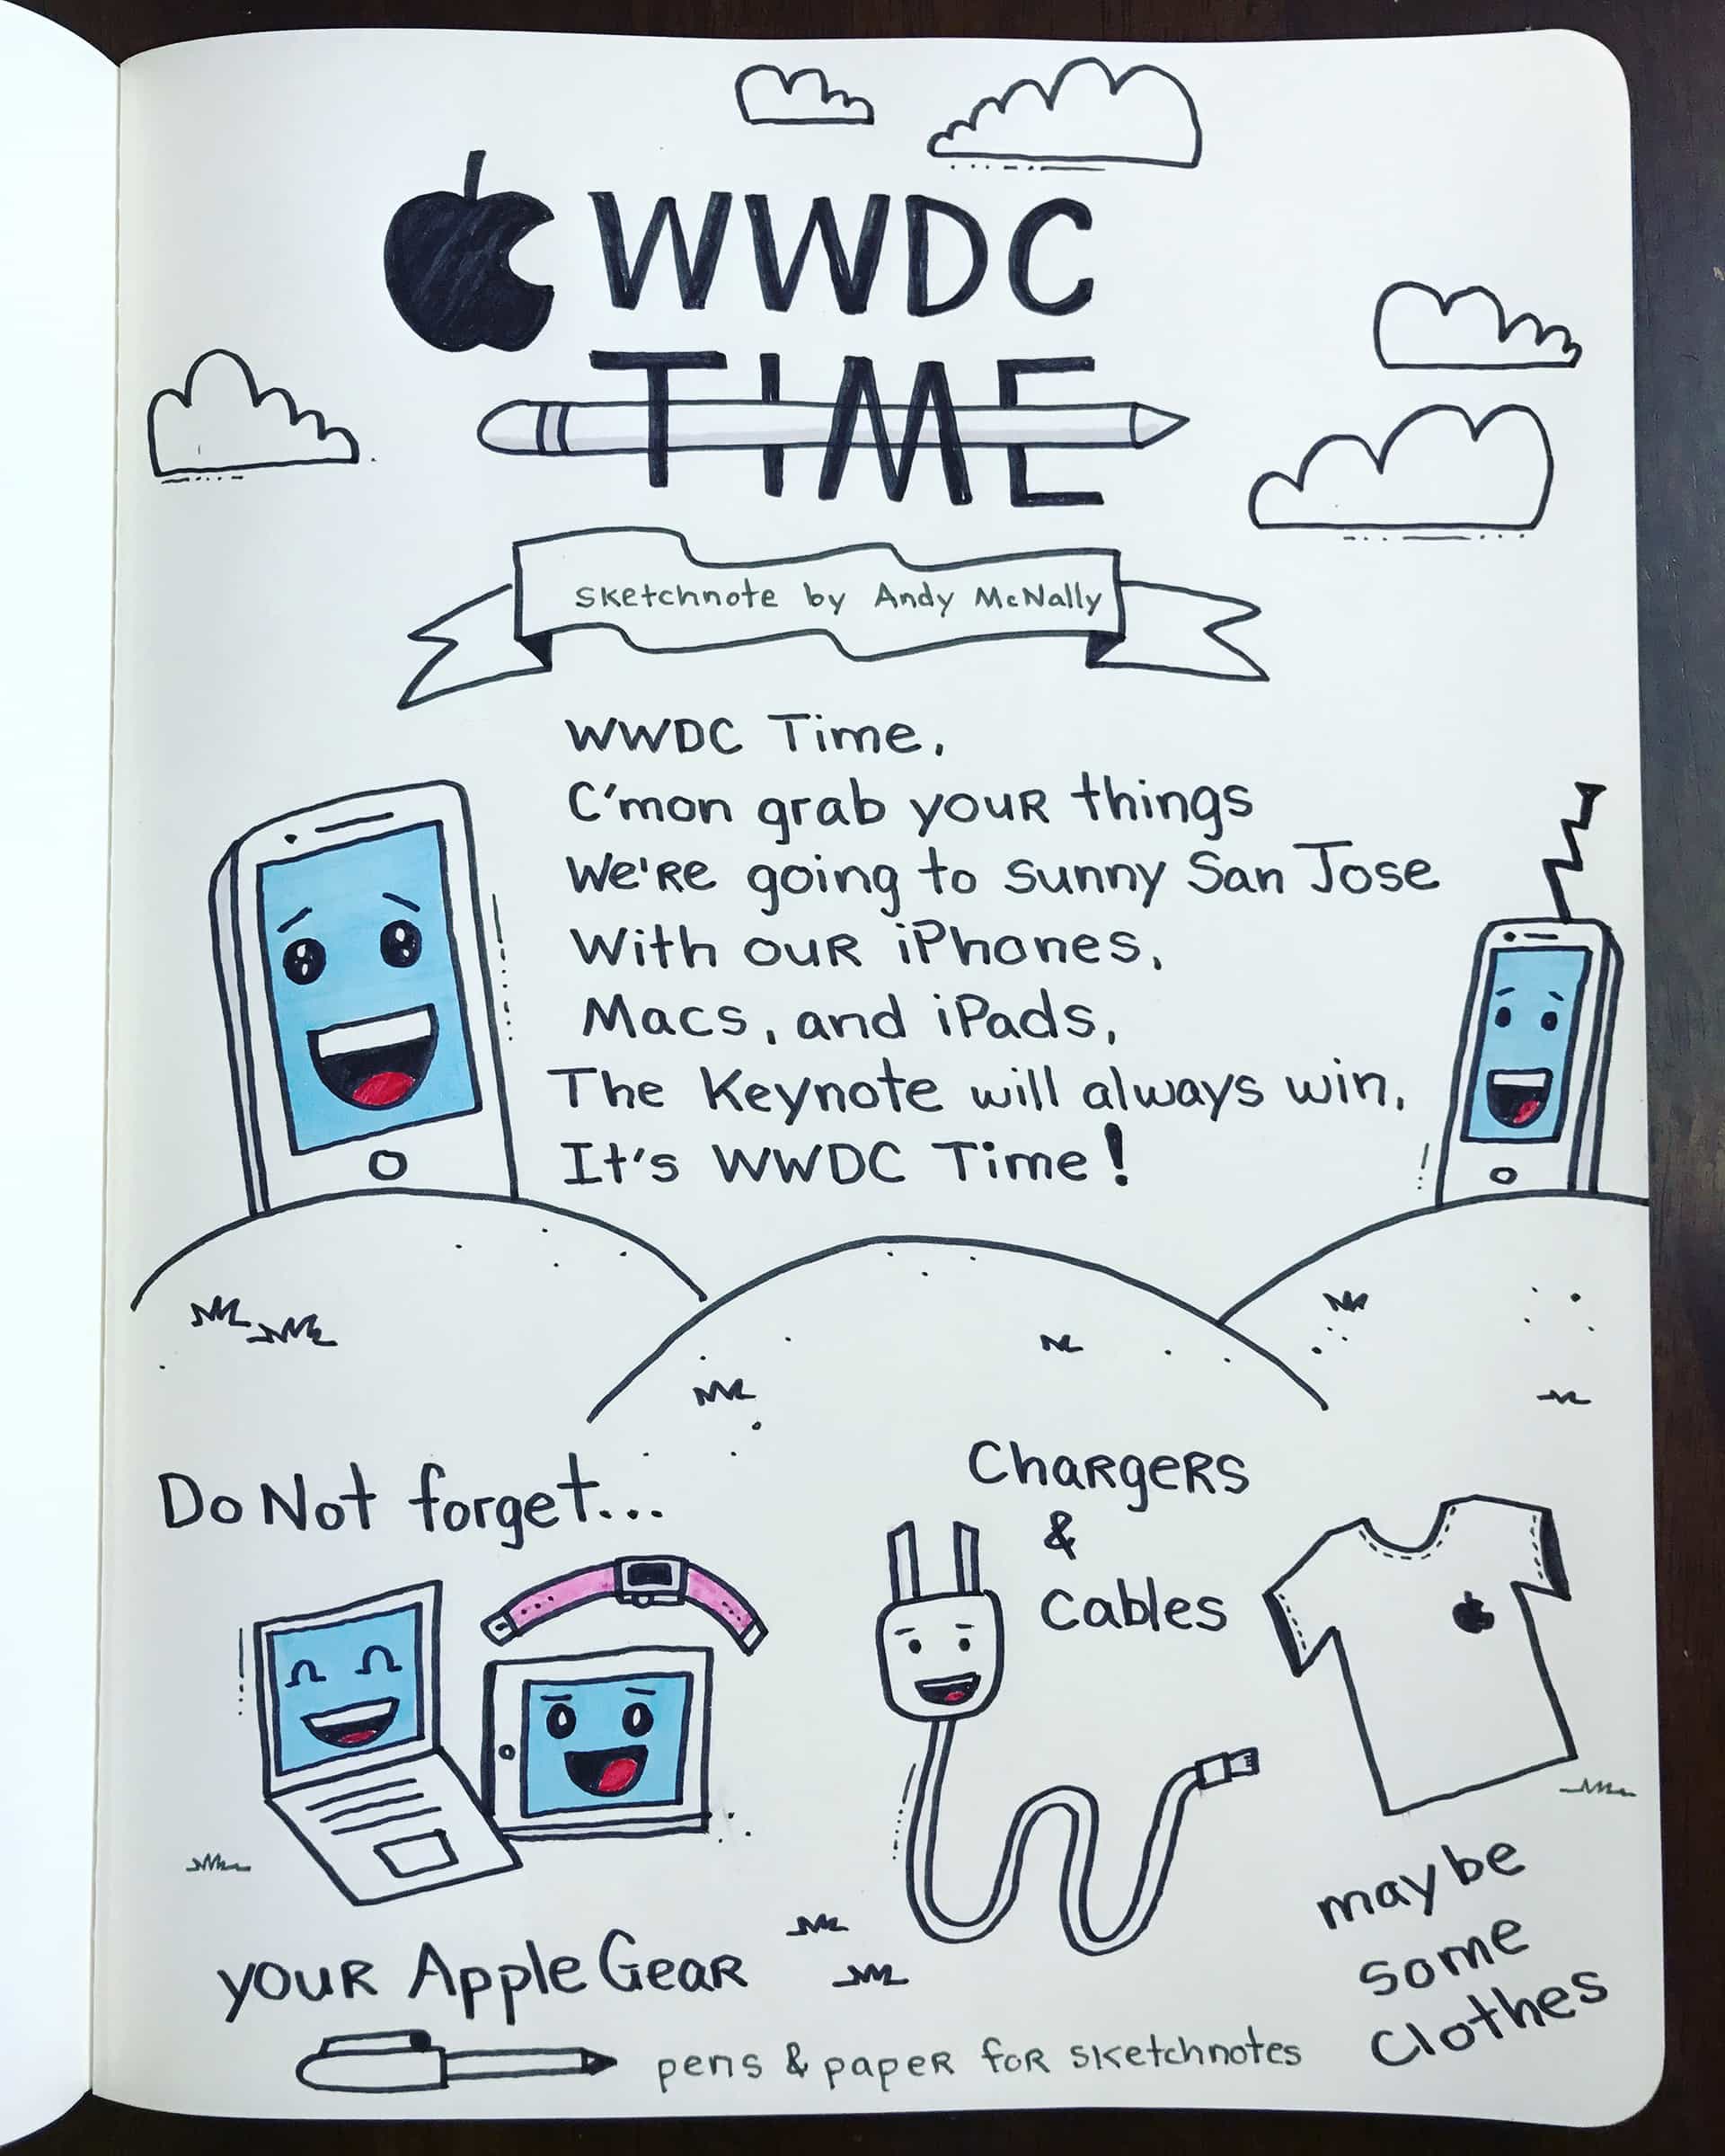 WWDC
TIME
sketchnote by Andy McNally
WWDC Time,
C'mon grab your things
We're going to sunny San Jose
With our iPhones,
Macs, and iPads,
The Keynote will always win,
It's WWDC Time!
Do Not forget...
Chargers
&
Cables
your Apple Gear
maybe
some
Clothes
pens & paper for sketchnotes